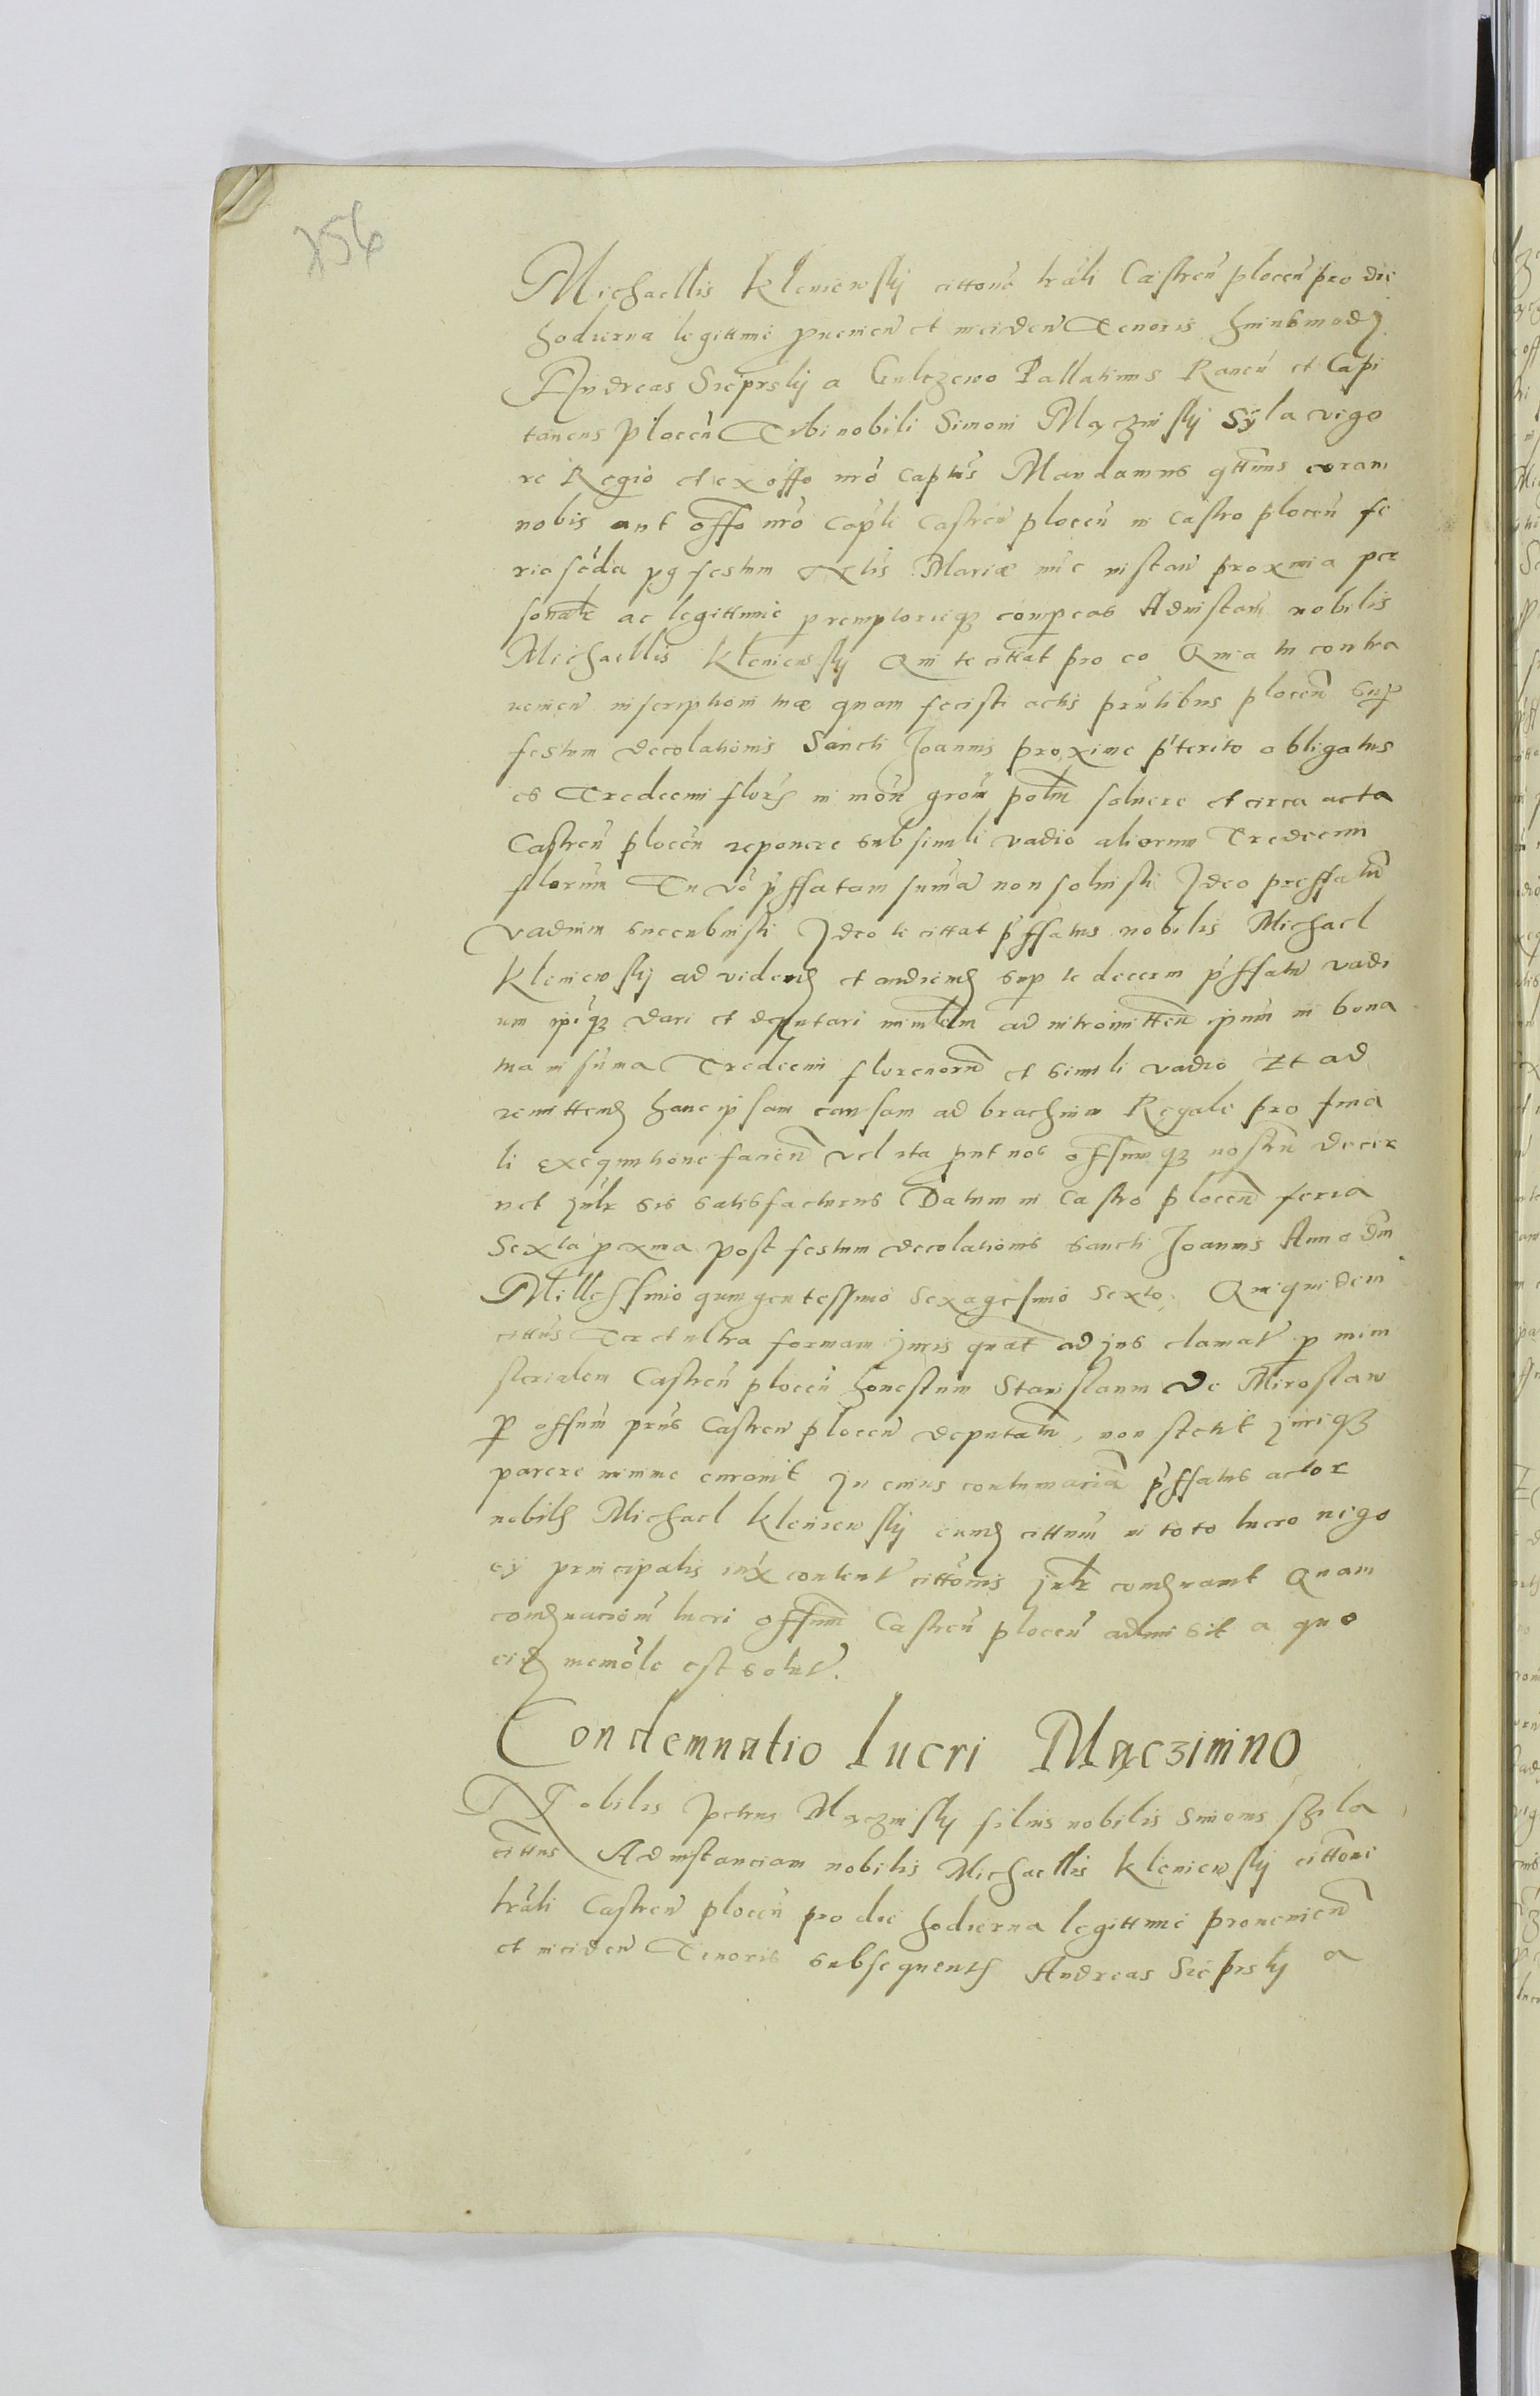 256
Michaellis Kleniewskij cittone trali Castren plocen pro die
hodierna legittime pvenien et inciden Tenoris huiusmodj
Andreas Sieprskij a Gulczewo Pallatinus Raven et Capi
taneus plocen Tibi nobili Simoni Mączinskij Syla vigo
re Regio et ex offo nro captus Mandamus qttinus coram
nobis aut offo nro capli castren plocen in castro plocen fe
ria scda pg festum Natis Mariae nuc instan proxima per
sonalr ac legittime peremptorieqz compeas Ad instam nobilis
Michaellis Kleniewskij Qui te cittat pro eo Quia tu contra
venien inscriptioni tuae quam fecisti actis pruntibus plocen sup
festum decolationis Sancti Joannis proxime pterito obligatus
es Tredecim flor in mon gron polm solvere et circa acta
Castren plocen reponere sub simili vadio aliorum Tredecim
florum Tu vo pffatam suma non solvisti Jdeo preffatu
vadium succubuisti Jdeo te cittat pffatus nobilis Michael
Kleniewskij ad vidend et audiend sup te decerni pffatu vadi
um ipiqz dari et deputari minlem ad intromitten ipum in bona
tua in suma Tredecim florenoru et simili vadio Et ad
remittend hanc ipsam causam ad brachium Regale pro fina
li exequutione facien vel ita put nos offiumqz nostru decer
net julr sis satisfacturus Datum in Castro plocen feria
Sexta pxma post festum decolationis sancti Joannis Anno dm
Millessimo quingentessimo sexagesimo sexto. Quiquidem
cittus Ter et ultra formam juris quat ad jus clamat p mini
sterialem Castren plocen honestum Stanislaum de Miroslaw
p offium prus Castren plocen deputatu, non stetit juriqz
parere minime curavit Jn cuius contumacia pffatus actor
nobils Michael Kleniewskij eund cittum in toto lucro nego
cij principalis iux content cittonis julr condnavit Quam
condnacionem lucri offium Castren plocen admisit a quo
eid memole est solut.
Condemnatio lucri Mączinino
Nobilis petrus Mączinskij filius nobilis Simonis szila
cittus Ad instanciam nobilis Michaellis Kleniewskij cittone
trali Castren plocen pro die hodierna legittime provenien
et inciden Tenoris subsequents Andreas Sieprskij a